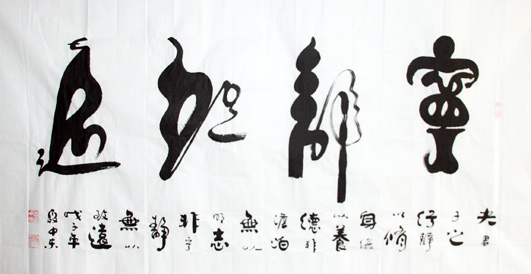 寧靜致遠
夫君
子之
行靜
以脩
身儉
以養
德非
澹泊
無以
明志
非寧
靜
無以
致遠
戊子年